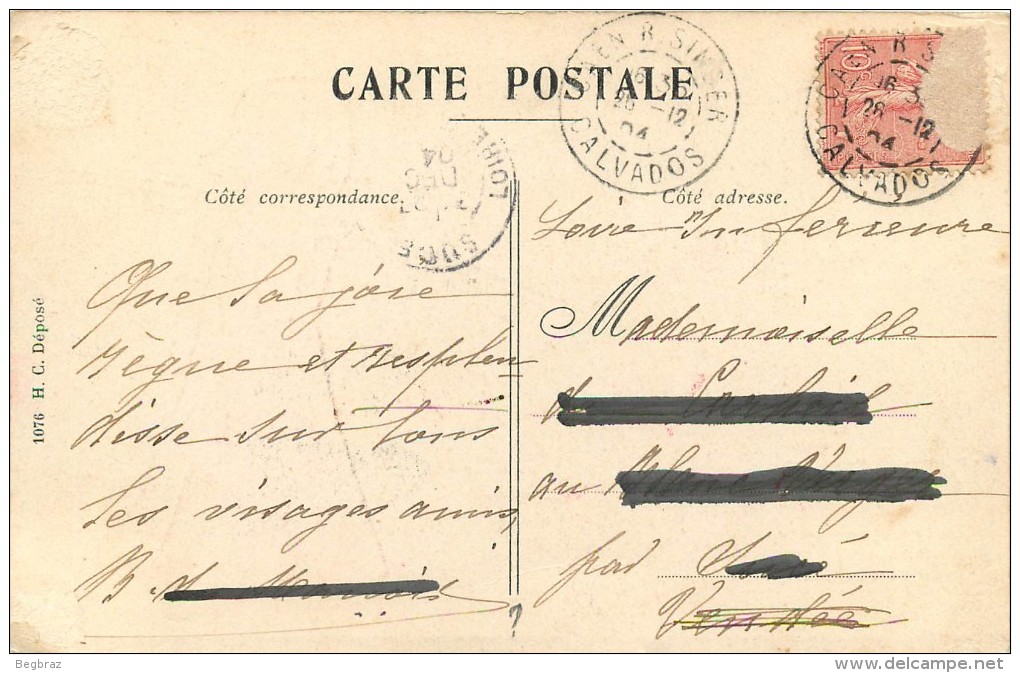 CARTE POSTALE
CAEN R. SINGER
16 3
26 -12
04
CALVADOS
CAEN R. S
16 3
26 -12
04
CALVADOS
10
LOIRE
DEC
04
Côté correspondance.
Côté adresse.
1076 H. C. Déposé
Que la joie
règne et resplen
disse sur tous
les visages amis,
B. d
Loire Inferieure
Mademoiselle
d
au
par
Vendée
?
Begbraz
www.delcampe.net